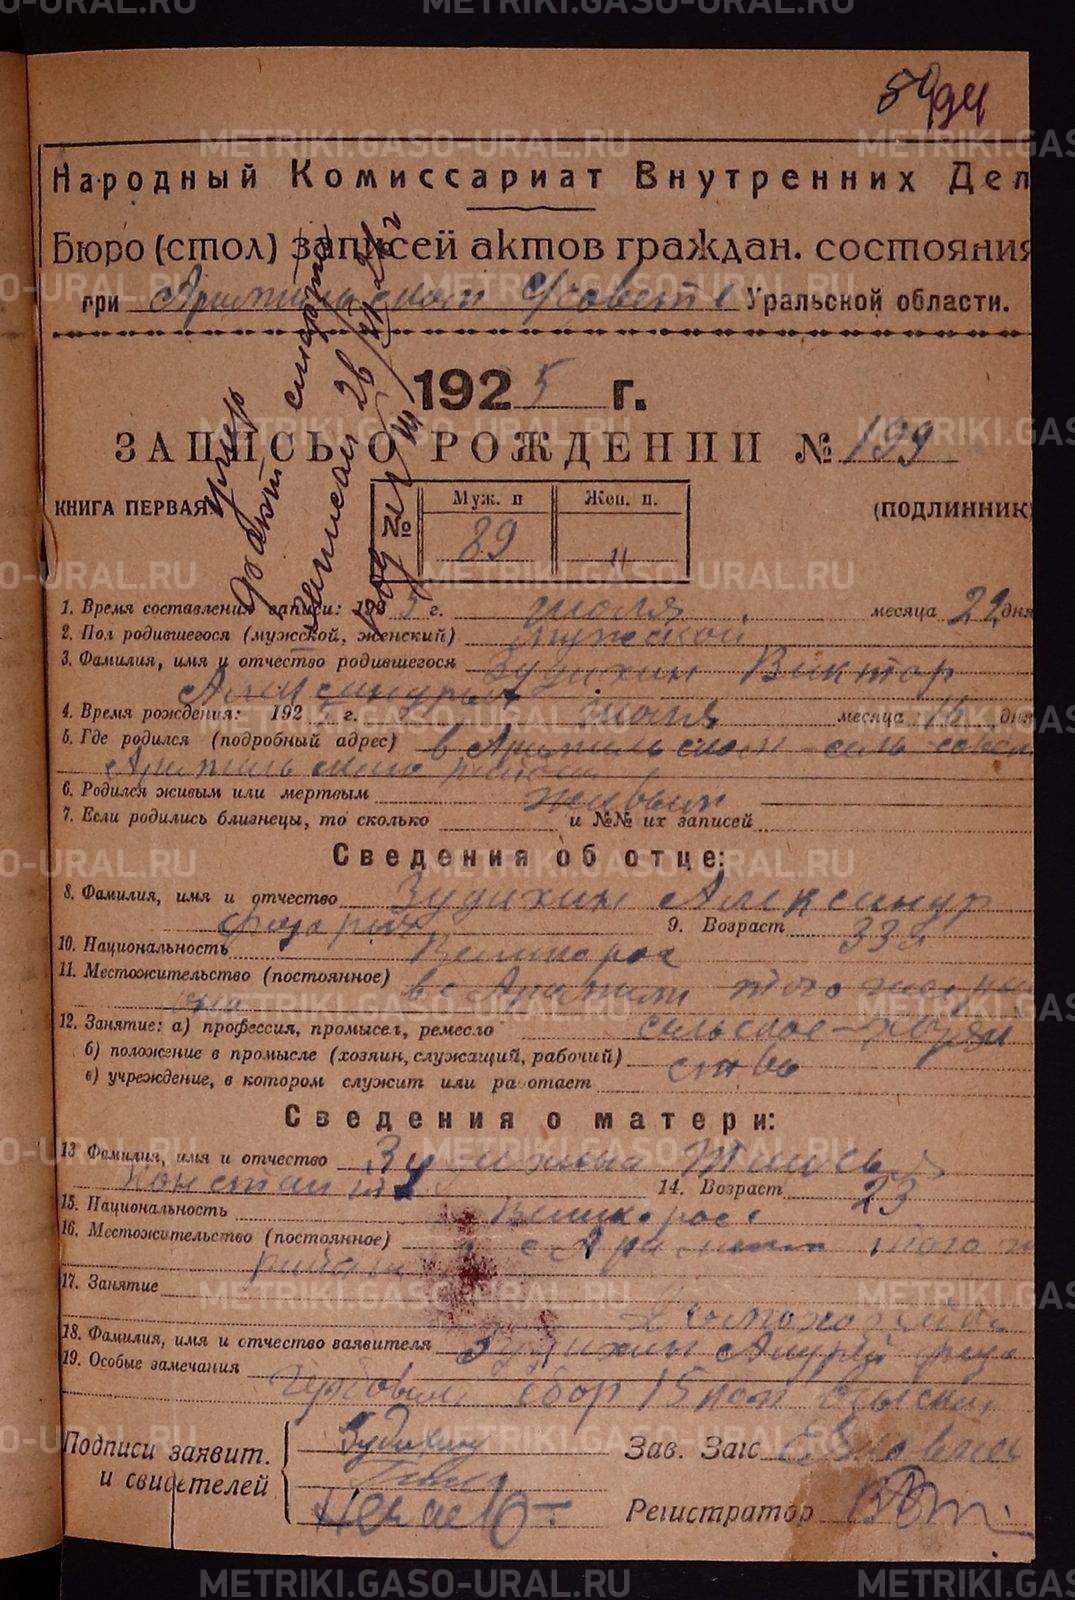 METRIKI.GASO-URAL.RU
50 94
Народный Комиссариат Внутренних Дел
Бюро (стол) записей актов граждан. состояния
при Арамильском Совете Уральской области.
1925 г.
ЗАПИСЬ О РОЖДЕНИИ № 199
КНИГА ПЕРВАЯ
(ПОДЛИННИК)
№ Муж. п Жен. п.
89 "
умер
акт смерти
записан 26
1. Время составления записи: 1925 г. июля месяца 22 дня
2. Пол родившегося (мужской, женский) мужской
3. Фамилия, имя и отчество родившегося Зудихин Виктор
Александрыч
4. Время рождения: 1925 г. июля месяца 16 дня
5. Где родился (подробный адрес) в Арамильском сель совет
Арамильского района
6. Родился живым или мертвым живым
7. Если родились близнецы, то сколько и №№ их записей
Сведения об отце:
8. Фамилия, имя и отчество Зудихин Александр
9. Возраст 33
10. Национальность Великорос
11. Местожительство (постоянное) в с Арамили того же рай
она
12. Занятие: а) профессия, промысел, ремесло сельское хозяй
б) положение в промысле (хозяин, служащий, рабочий) ство
в) учреждение, в котором служит или работает
Сведения о матери:
13 Фамилия, имя и отчество Зудихина Таисья
Констант
14. Возраст 23
15. Национальность Великорос
16. Местожительство (постоянное) с Арамили того ж
района
17. Занятие
Домохозяйка
18. Фамилия, имя и отчество заявителя Зудихин
19. Особые замечания Гербовый сбор 15 коп взыскан
Подписи заявит.
и свидетелей
Зудихин
Зав. Загс
Некрасов
Регистратор